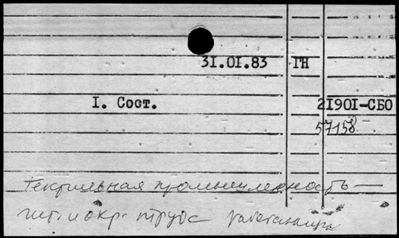 31.01.83 ГН
I. Сост. 21901-СБО
57158
Текстильная промышленность —
гиг. и окр. труда работающих